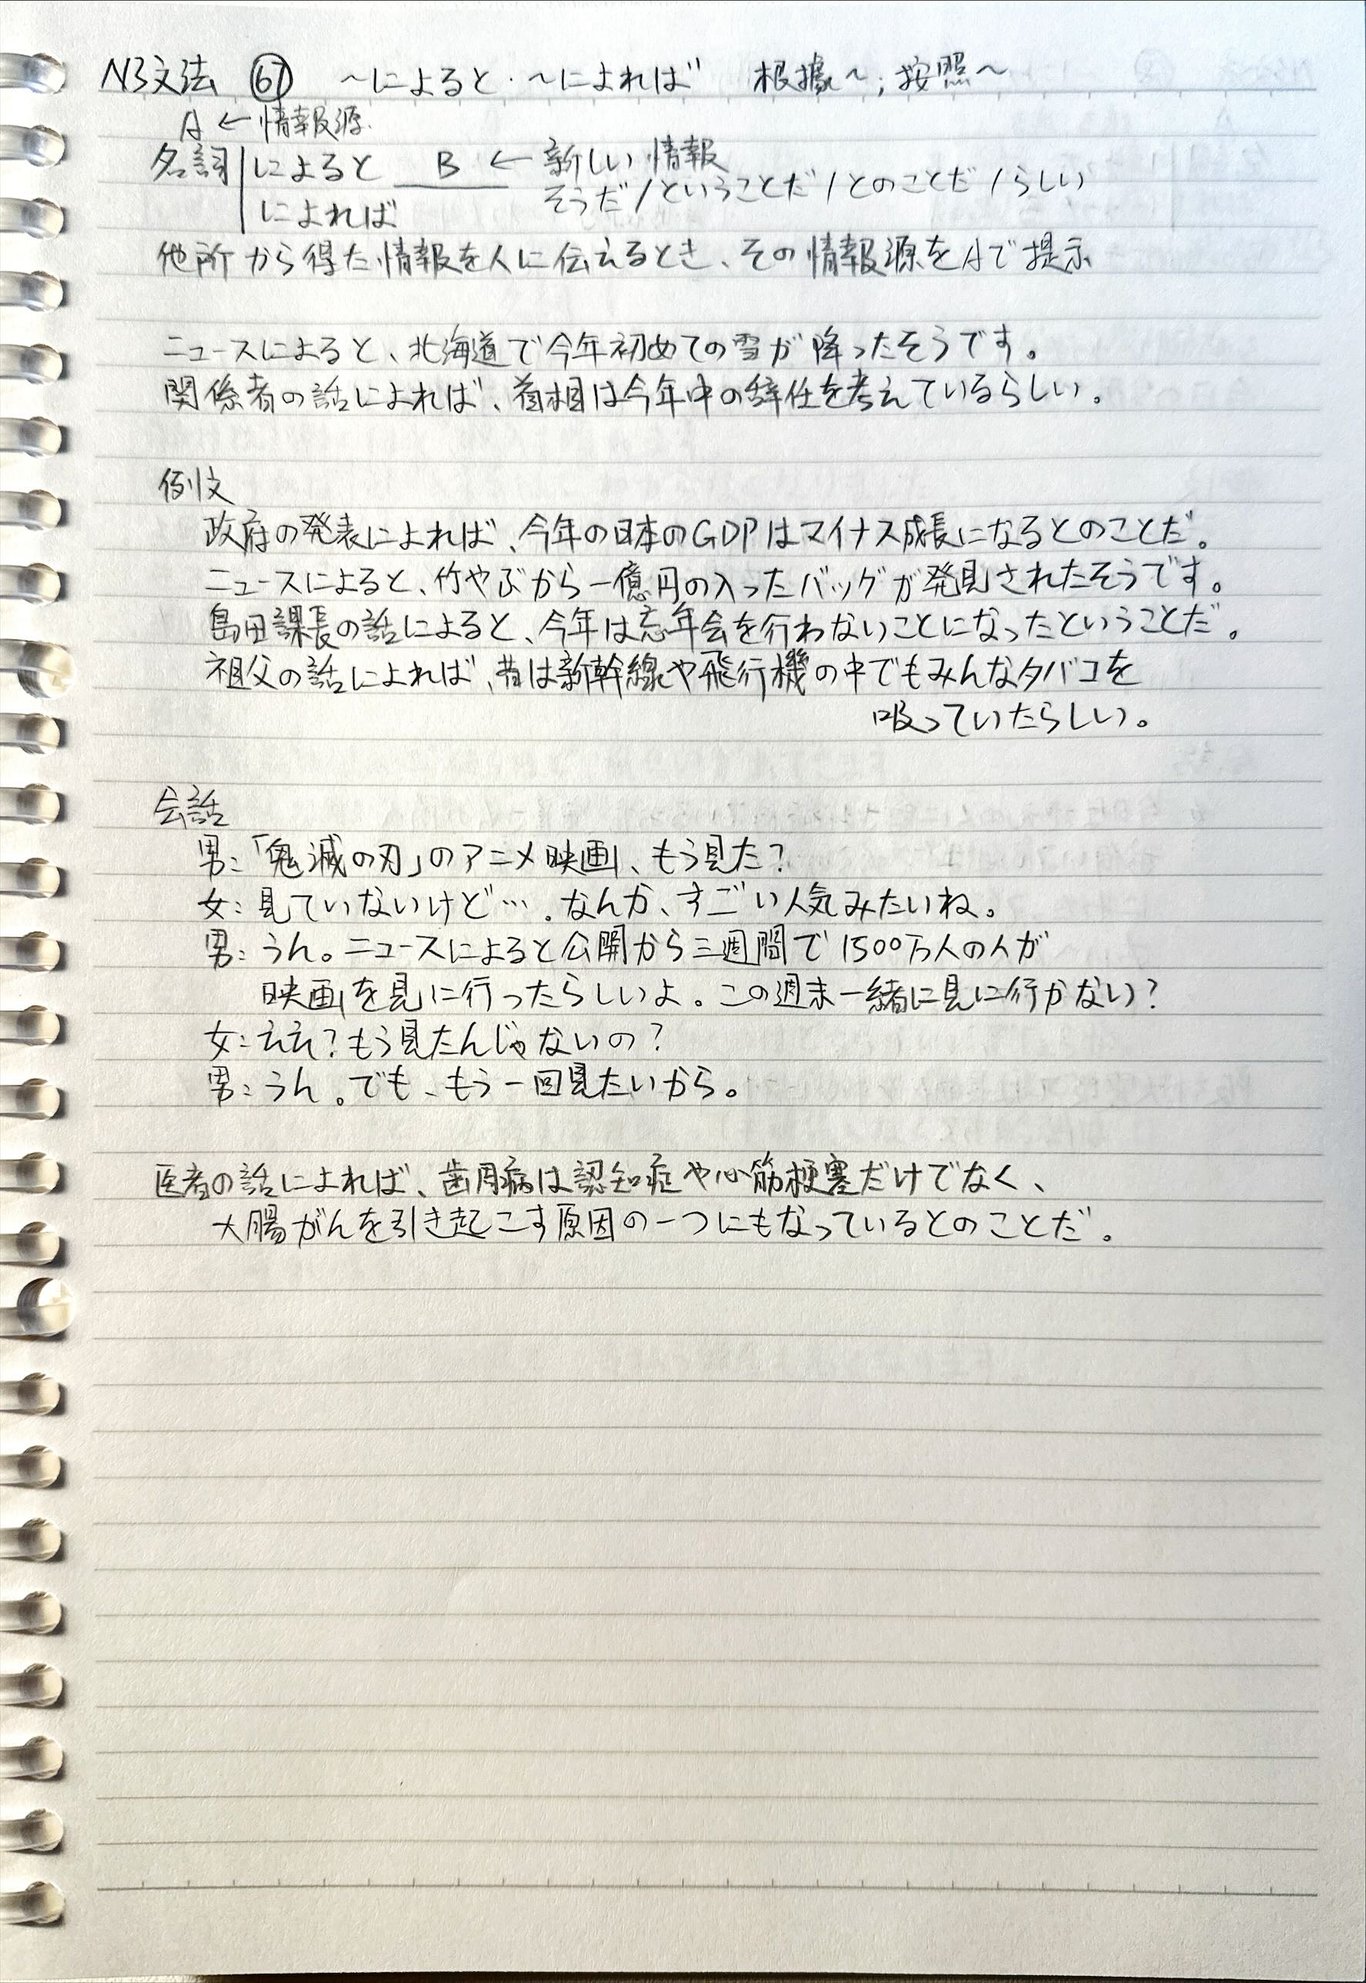 N3文法 67 ～によると・～によれば 根據～；按照～
A ← 情報源
名詞 によると B ← 新しい情報
によれば そうだ/ということだ/とのことだ/らしい
他所から得た情報を人に伝えるとき、その情報源をAで提示
ニュースによると、北海道で今年初めての雪が降ったそうです。
関係者の話によれば、首相は今年中の辞任を考えているらしい。
例文
政府の発表によれば、今年の日本のGDPはマイナス成長になるとのことだ。
ニュースによると、竹やぶから一億円の入ったバッグが発見されたそうです。
島田課長の話によると、今年は忘年会を行わないことになったということだ。
祖父の話によれば、昔は新幹線や飛行機の中でもみんなタバコを
吸っていたらしい。
会話
男：「鬼滅の刃」のアニメ映画、もう見た？
女：見ていないけど…。なんか、すごい人気みたいね。
男：うん。ニュースによると公開から三週間で1500万人の人が
映画を見に行ったらしいよ。この週末一緒に見に行かない？
女：ええ？もう見たんじゃないの？
男：うん。でも、もう一回見たいから。
医者の話によれば、歯周病は認知症や心筋梗塞だけでなく、
大腸がんを引き起こす原因の一つにもなっているとのことだ。